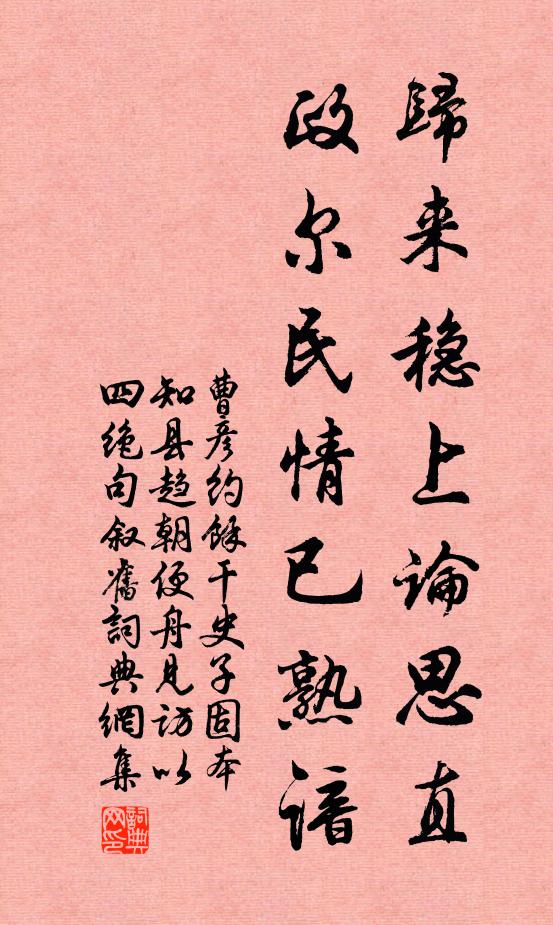 歸来稳上論思直
政尔民情已熟谙
曹彦约餘干史子固本
知县趋朝便舟见访以
四绝句叙舊詞典網集
詞典
网印